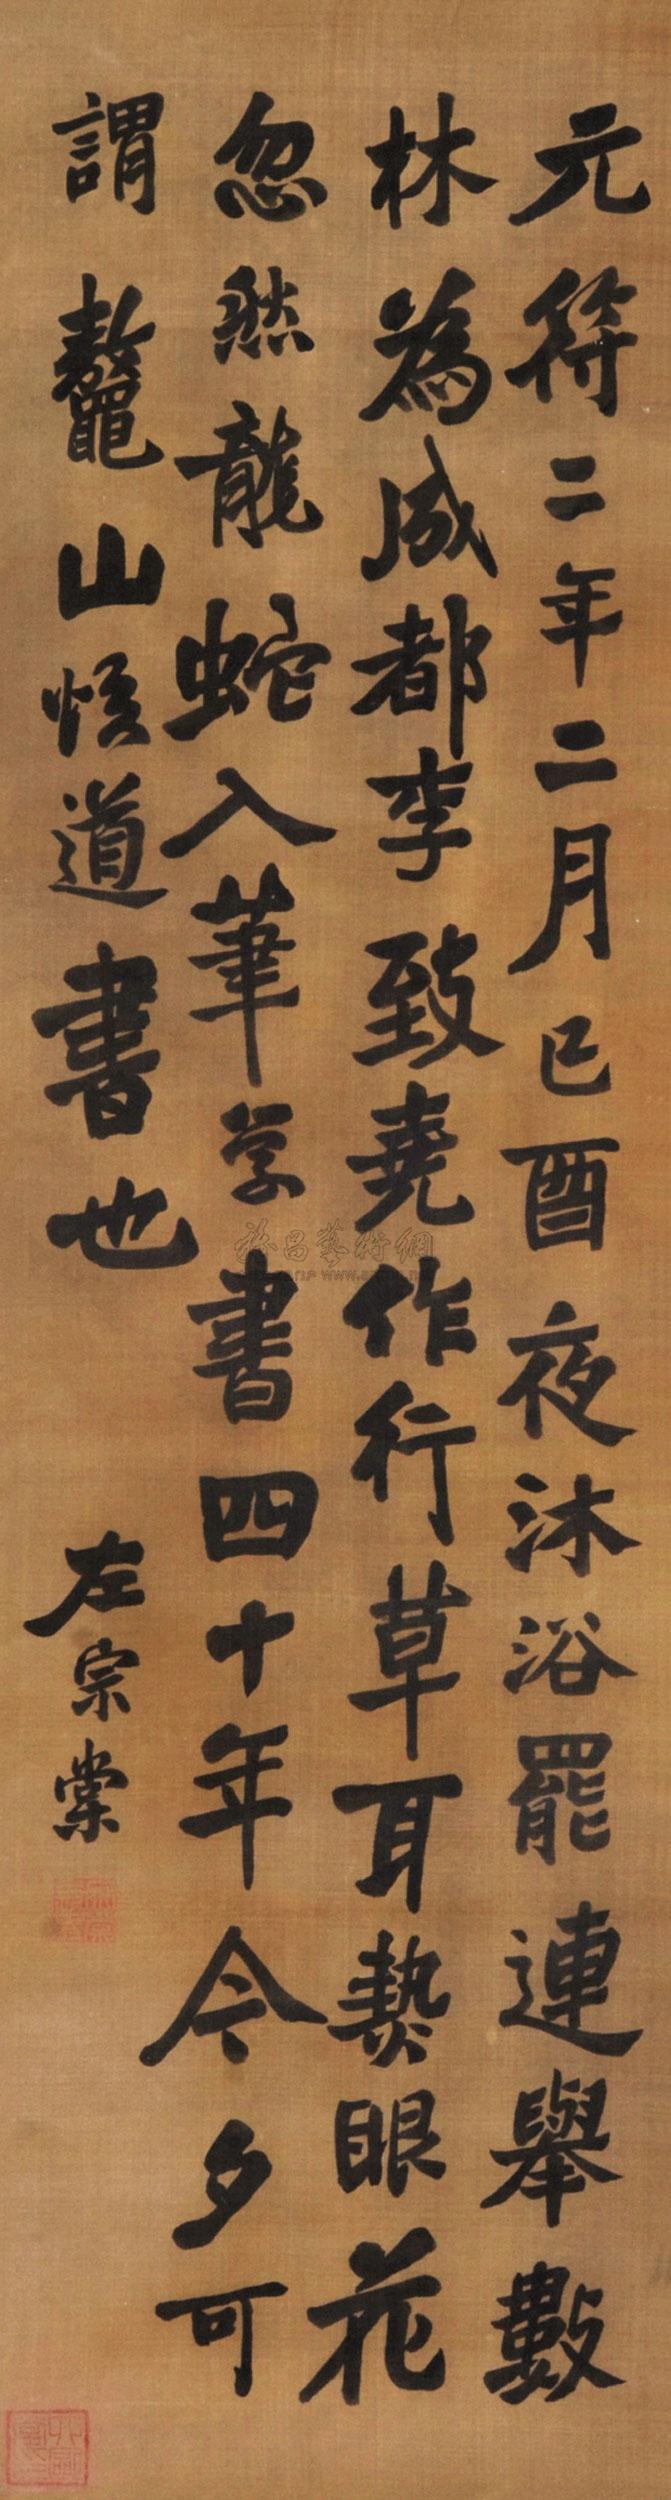 元符二年二月己酉夜沐浴罷連舉數
林為成都李致堯作行草耳熱眼花
忽然龍蛇入筆学書四十年今夕可
謂鼇山悟道書也
左宗棠